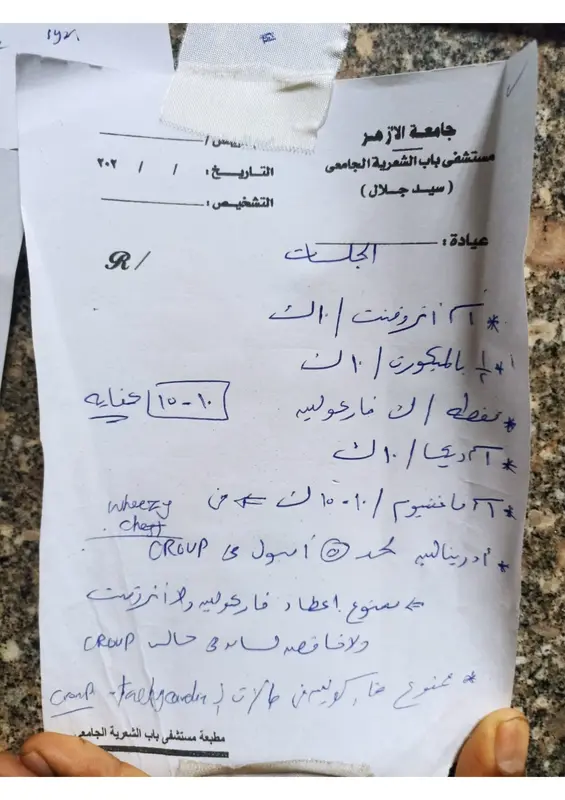 جامعة الازهر
مستشفى باب الشعرية الجامعى
( سيد جلال )
التاريخ : / / ٢٠٢
التشخيص :
عيادة :
الجلسات
R/
* ١سم أتروفنت / ١٠ك
* ½ بالميكورت / ١٠ك
* نقطه / ك فاركولين ١٠-١٥
* ١سم / ١٠ك
* ١سم ماغنسيوم / ١٠-١٥ك ⇐ فى wheezy chest
* أدرينالين لحد ٥ أمبول فى CROUP
⇐ ممنوع إعطاء فاركولين ولا أتروفنت
ولا فى حالت CROUP
* ممنوع فاركولين فى حالات ال tachycardia - croup
مطبعة مستشفى باب الشعرية الجامعى